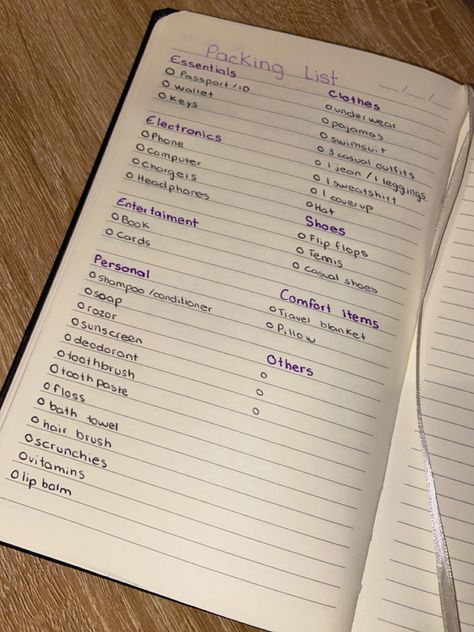 Packing List
Essentials
o Passport/ID
o wallet
o Keys
Electronics
o Phone
o Computer
o Chargers
o Headphones
Entertaiment
o Book
o Cards
Personal
o shampoo/conditioner
o soap
o razor
o sunscreen
o deodorant
o toothbrush
o tooth paste
o floss
o bath towel
o hair brush
o scrunchies
o vitamins
o lip balm
Clothes
o underwear
o pajamas
o swimsuit
o 3 casual outfits
o 1 jean /1 leggings
o 1 sweatshirt
o 1 coverup
o Hat
Shoes
o Flip flops
o Tennis
o Casual shoes
Comfort items
o Travel blanket
o Pillow
Others
o
o
o